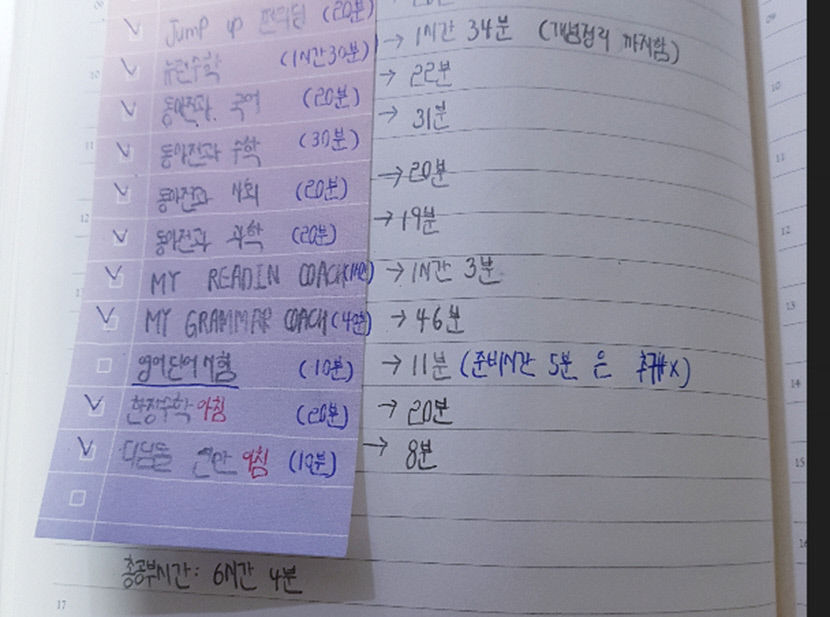 Jump up (20분)
09
09
뉴런수학 (1시간30분) → 1시간 34분 (개념정리 까지함)
10
동아전과 국어 (20분) → 22분
10
동아전과 수학 (30분) → 31분
11
11
동아전과 사회 (20분) → 20분
동아전과 과학 (20분) → 19분
12
12
MY READIN COACH → 1시간 3분
13
MY GRAMMAR COACH (40분) → 46분
13
영어단어시험 (10분) → 11분 (준비시간 5분 은 추가x)
14
한장수학 아침 (20분) → 20분
아침 (10분) → 8분
15
16
총공부시간: 6시간 4분
17